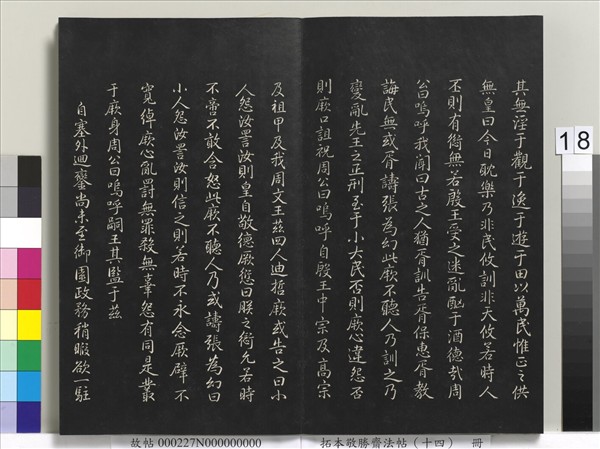 其無淫于觀于逸于遊于田以萬民惟正之供
無皇曰今日耽樂乃非民攸訓非天攸若時人
丕則有愆無若殷王受之迷亂酗于酒德哉周
公曰嗚呼我聞曰古之人猶胥訓告胥保惠胥教
誨民無或胥譸張為幻此厥不聽人乃訓之乃
變亂先王之正刑至于小大民否則厥心違怨否
則厥口詛祝周公曰嗚呼自殷王中宗及高宗
及祖甲及我周文王茲四人迪哲厥或告之曰小
人怨汝詈汝則皇自敬德厥愆曰朕之愆允若時
不啻不敢含怒此厥不聽人乃或譸張為幻曰
小人怨汝詈汝則信之則若時不永念厥辟不
寬綽厥心亂罰無罪殺無辜怨有同是叢
于厥身周公曰嗚呼嗣王其監于茲
自塞外迴鑾尚未至御園政務稍暇欲一駐
18
故帖 000227N000000000 拓本敬勝齋法帖（十四） 冊